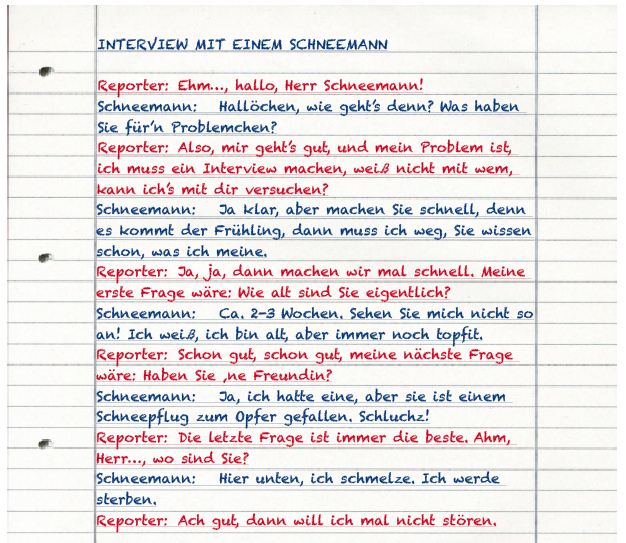 INTERVIEW MIT EINEM SCHNEEMANN
Reporter: Ehm..., hallo, Herr Schneemann!
Schneemann: Hallöchen, wie geht's denn? Was haben
Sie für'n Problemchen?
Reporter: Also, mir geht's gut, und mein Problem ist,
ich muss ein Interview machen, weiß nicht mit wem,
kann ich's mit dir versuchen?
Schneemann: Ja klar, aber machen Sie schnell, denn
es kommt der Frühling, dann muss ich weg, Sie wissen
schon, was ich meine.
Reporter: Ja, ja, dann machen wir mal schnell. Meine
erste Frage wäre: Wie alt sind Sie eigentlich?
Schneemann: Ca. 2-3 Wochen. Sehen Sie mich nicht so
an! Ich weiß, ich bin alt, aber immer noch topfit.
Reporter: Schon gut, schon gut, meine nächste Frage
wäre: Haben Sie ,ne Freundin?
Schneemann: Ja, ich hatte eine, aber sie ist einem
Schneepflug zum Opfer gefallen. Schluchz!
Reporter: Die letzte Frage ist immer die beste. Ahm,
Herr..., wo sind Sie?
Schneemann: Hier unten, ich schmelze. Ich werde
sterben.
Reporter: Ach gut, dann will ich mal nicht stören.